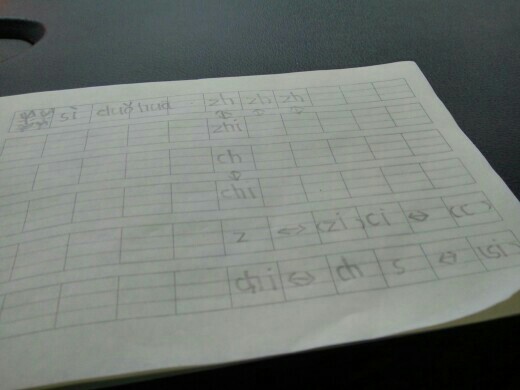 si duǒ huā zh zh zh
zhi
ch
chi
z ⇔ (zi) ci ⇔ (c)
chi ⇔ ch s ⇔ (si)